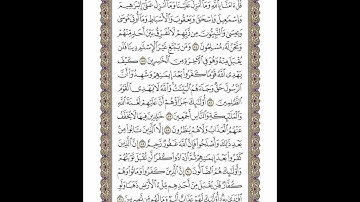 قُلْ ءَامَنَّا بِٱللَّهِ وَمَآ أُنزِلَ عَلَيْنَا وَمَآ أُنزِلَ عَلَىٰٓ إِبْرَٰهِيمَ
وَإِسْمَٰعِيلَ وَإِسْحَٰقَ وَيَعْقُوبَ وَٱلْأَسْبَاطِ وَمَآ أُوتِىَ مُوسَىٰ
وَعِيسَىٰ وَٱلنَّبِيُّونَ مِن رَّبِّهِمْ لَا نُفَرِّقُ بَيْنَ أَحَدٍ مِّنْهُمْ
وَنَحْنُ لَهُۥ مُسْلِمُونَ ۝ وَمَن يَبْتَغِ غَيْرَ ٱلْإِسْلَٰمِ دِينًا فَلَن
يُقْبَلَ مِنْهُ وَهُوَ فِى ٱلْءَاخِرَةِ مِنَ ٱلْخَٰسِرِينَ ۝ كَيْفَ
يَهْدِى ٱللَّهُ قَوْمًا كَفَرُوا۟ بَعْدَ إِيمَٰنِهِمْ وَشَهِدُوٓا۟ أَنَّ
ٱلرَّسُولَ حَقٌّ وَجَآءَهُمُ ٱلْبَيِّنَٰتُ وَٱللَّهُ لَا يَهْدِى ٱلْقَوْمَ
ٱلظَّٰلِمِينَ ۝ أُو۟لَٰٓئِكَ جَزَآؤُهُمْ أَنَّ عَلَيْهِمْ لَعْنَةَ ٱللَّهِ
وَٱلْمَلَٰٓئِكَةِ وَٱلنَّاسِ أَجْمَعِينَ ۝ خَٰلِدِينَ فِيهَا لَا يُخَفَّفُ
عَنْهُمُ ٱلْعَذَابُ وَلَا هُمْ يُنظَرُونَ ۝ إِلَّا ٱلَّذِينَ تَابُوا۟ مِنۢ
بَعْدِ ذَٰلِكَ وَأَصْلَحُوا۟ فَإِنَّ ٱللَّهَ غَفُورٌ رَّحِيمٌ ۝ إِنَّ ٱلَّذِينَ
كَفَرُوا۟ بَعْدَ إِيمَٰنِهِمْ ثُمَّ ٱزْدَادُوا۟ كُفْرًا لَّن تُقْبَلَ تَوْبَتُهُمْ
وَأُو۟لَٰٓئِكَ هُمُ ٱلضَّآلُّونَ ۝ إِنَّ ٱلَّذِينَ كَفَرُوا۟ وَمَاتُوا۟ وَهُمْ
كُفَّارٌ فَلَن يُقْبَلَ مِنْ أَحَدِهِم مِّلْءُ ٱلْأَرْضِ ذَهَبًا وَلَوِ
ٱفْتَدَىٰ بِهِۦٓ أُو۟لَٰٓئِكَ لَهُمْ عَذَابٌ أَلِيمٌ وَمَا لَهُم مِّن نَّٰصِرِينَ ۝